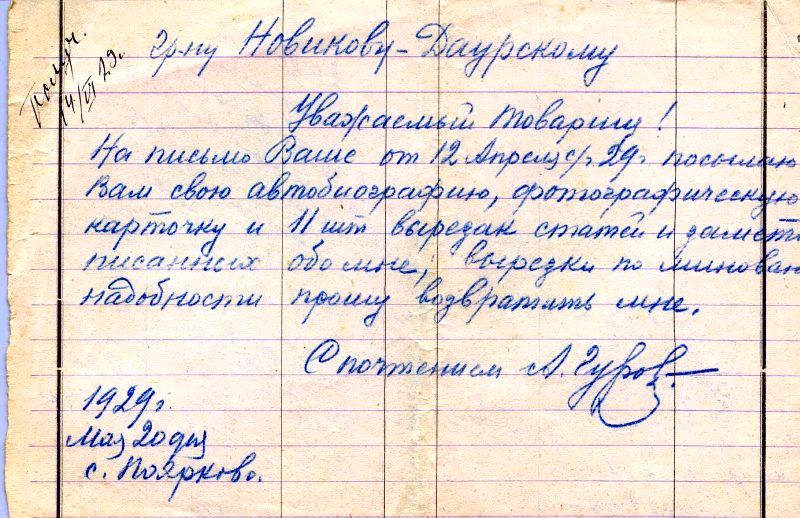 Получ.
14/VI 29г.
гр-ну Новикову-Даурскому
Уважаемый товарищ!
На письмо Ваше от 12 Апреля с/г. 29г. посылаю
Вам свою автобиографию, фотографическую
карточку и 11 шт вырезак статей и заметк
писанных обо мне, вырезки по минован
надобности прошу возвратить мне.
С почтением А. Гуров
1929г.
Мая 20 дня
с. Поярково.